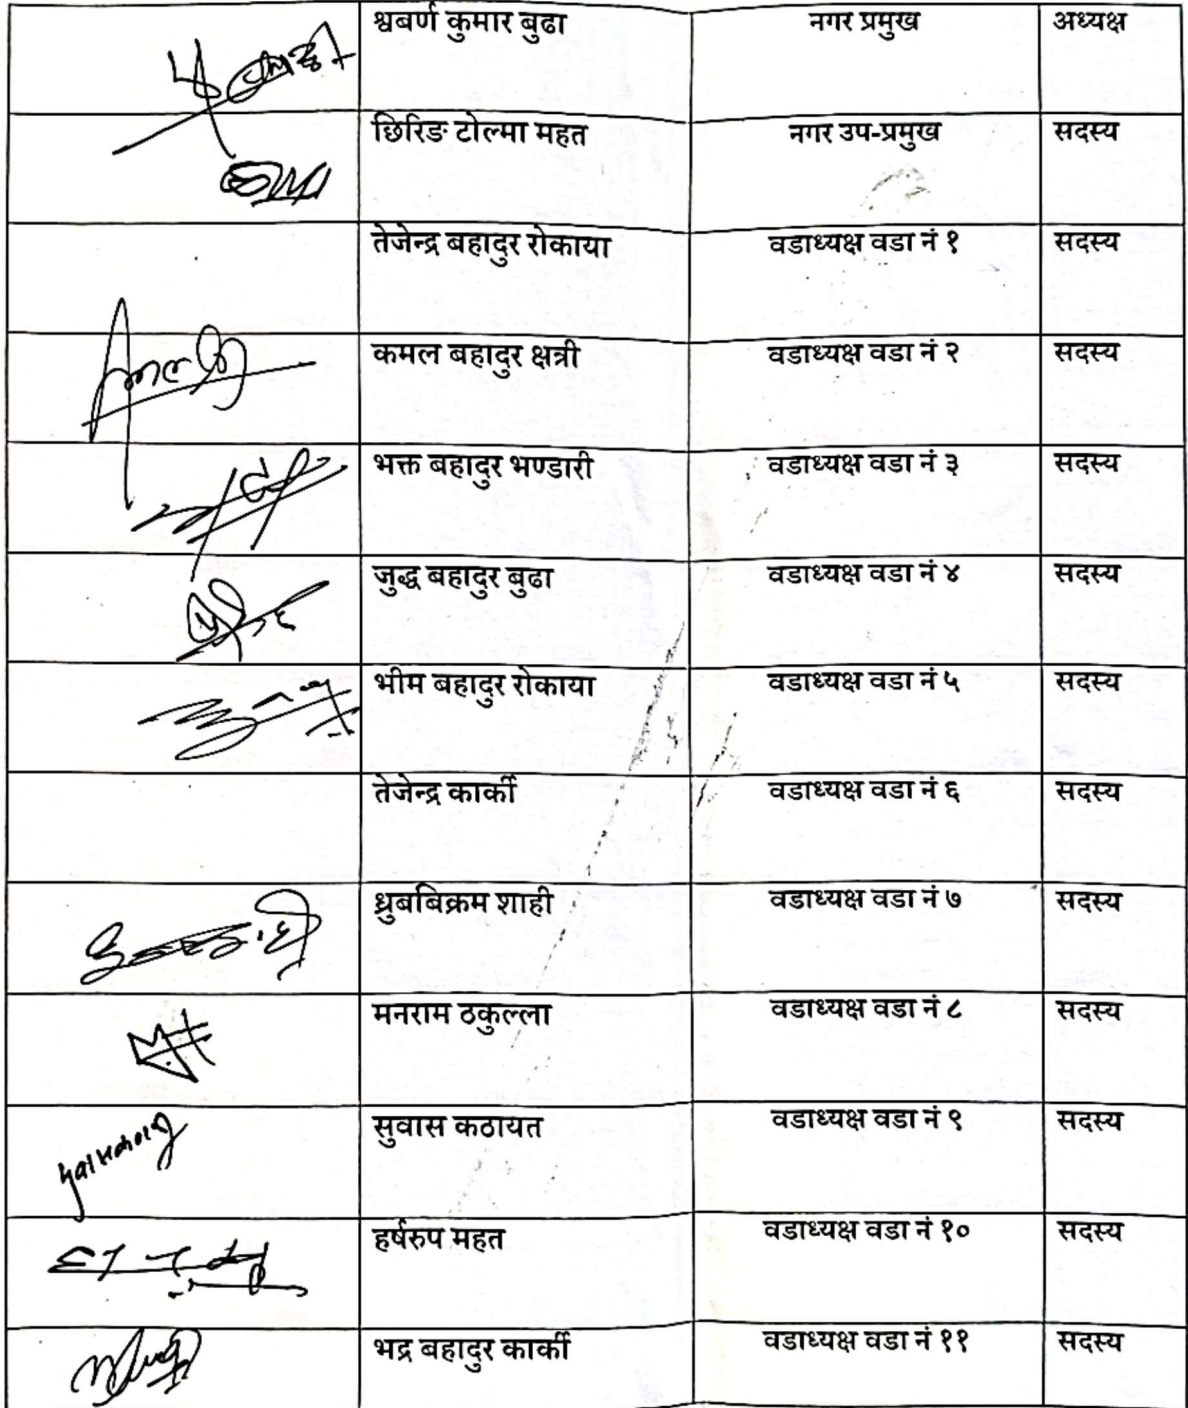 श्वबर्ण कुमार बुढा नगर प्रमुख अध्यक्ष
छिरिङ टोल्मा महत नगर उप-प्रमुख सदस्य
तेजेन्द्र बहादुर रोकाया वडाध्यक्ष वडा नं १ सदस्य
कमल बहादुर क्षत्री वडाध्यक्ष वडा नं २ सदस्य
भक्त बहादुर भण्डारी वडाध्यक्ष वडा नं ३ सदस्य
जुद्ध बहादुर बुढा वडाध्यक्ष वडा नं ४ सदस्य
भीम बहादुर रोकाया वडाध्यक्ष वडा नं ५ सदस्य
तेजेन्द्र कार्की वडाध्यक्ष वडा नं ६ सदस्य
ध्रुबबिक्रम शाही वडाध्यक्ष वडा नं ७ सदस्य
मनराम ठकुल्ला वडाध्यक्ष वडा नं ८ सदस्य
सुवास कठायत वडाध्यक्ष वडा नं ९ सदस्य
हर्षरुप महत वडाध्यक्ष वडा नं १० सदस्य
भद्र बहादुर कार्की वडाध्यक्ष वडा नं ११ सदस्य